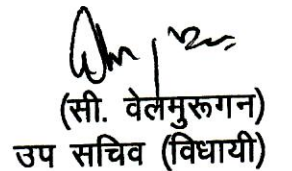 (सी. वेलमुरूगन)
उप सचिव (विधायी)